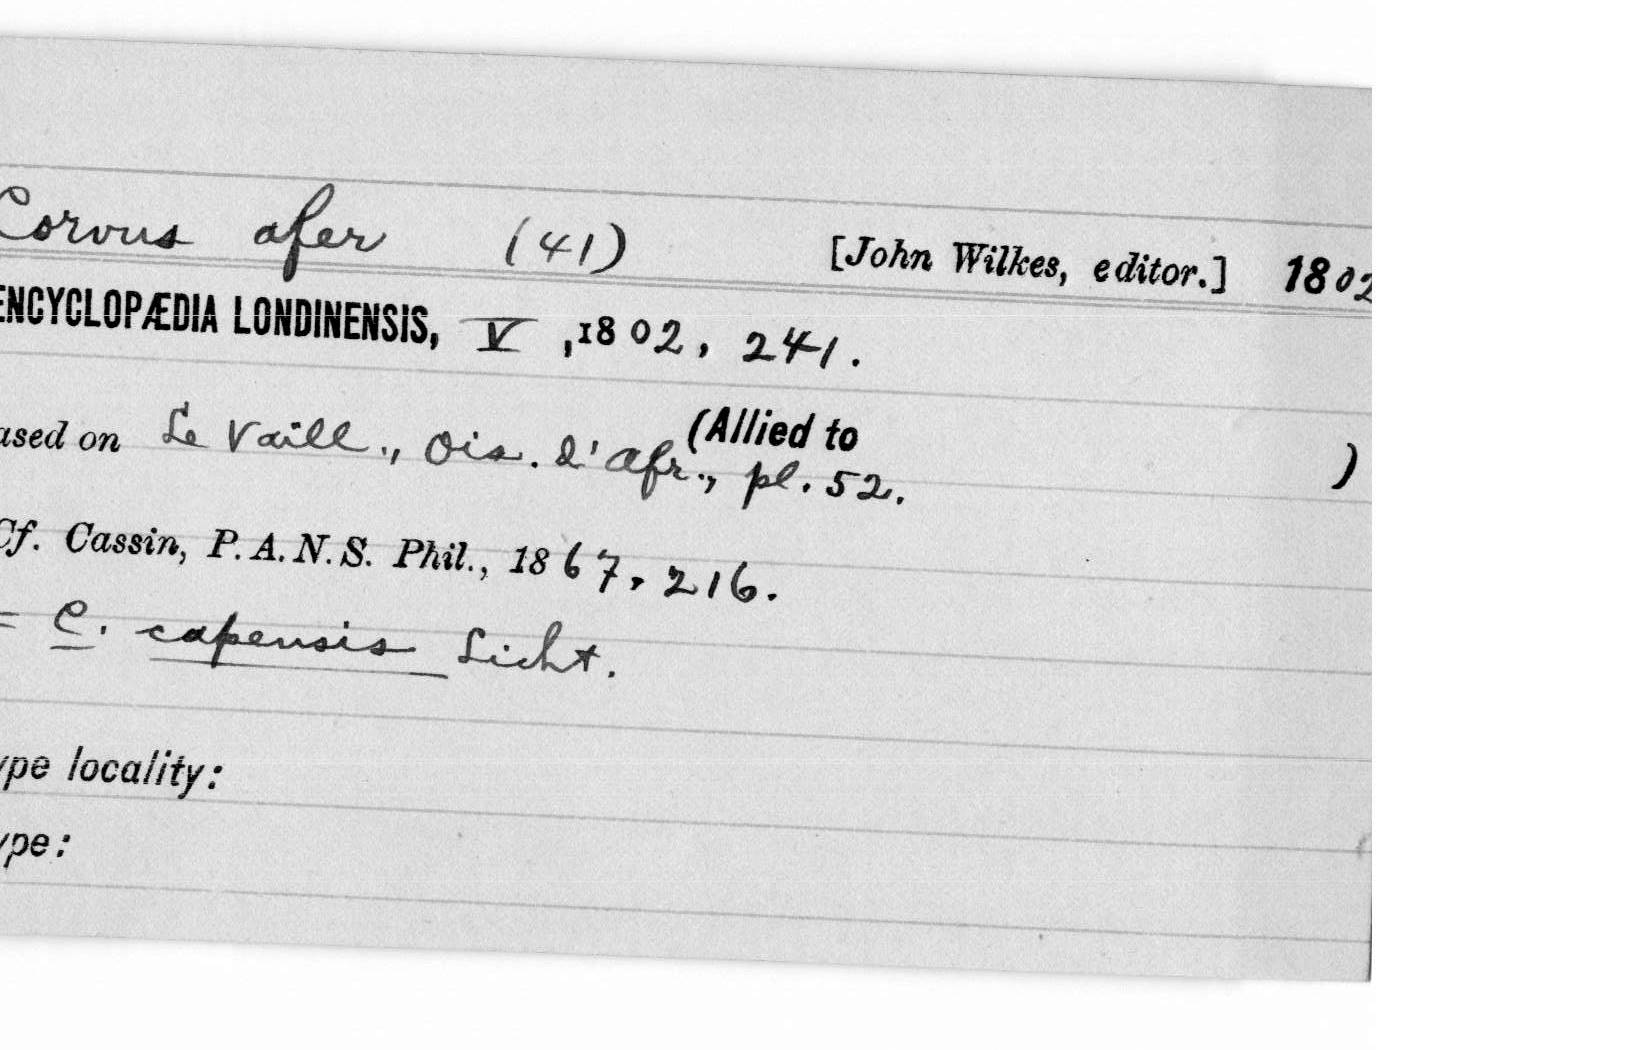 Corvus afer (41) [John Wilkes, editor.] 1802
ENCYCLOPÆDIA LONDINENSIS, V, 1802, 241.
(Allied to )
ased on Le Vaill., Ois. d'Afr., pl. 52.
Cf. Cassin, P. A. N. S. Phil., 1867, 216.
= C. capensis Licht.
ype locality:
ype: